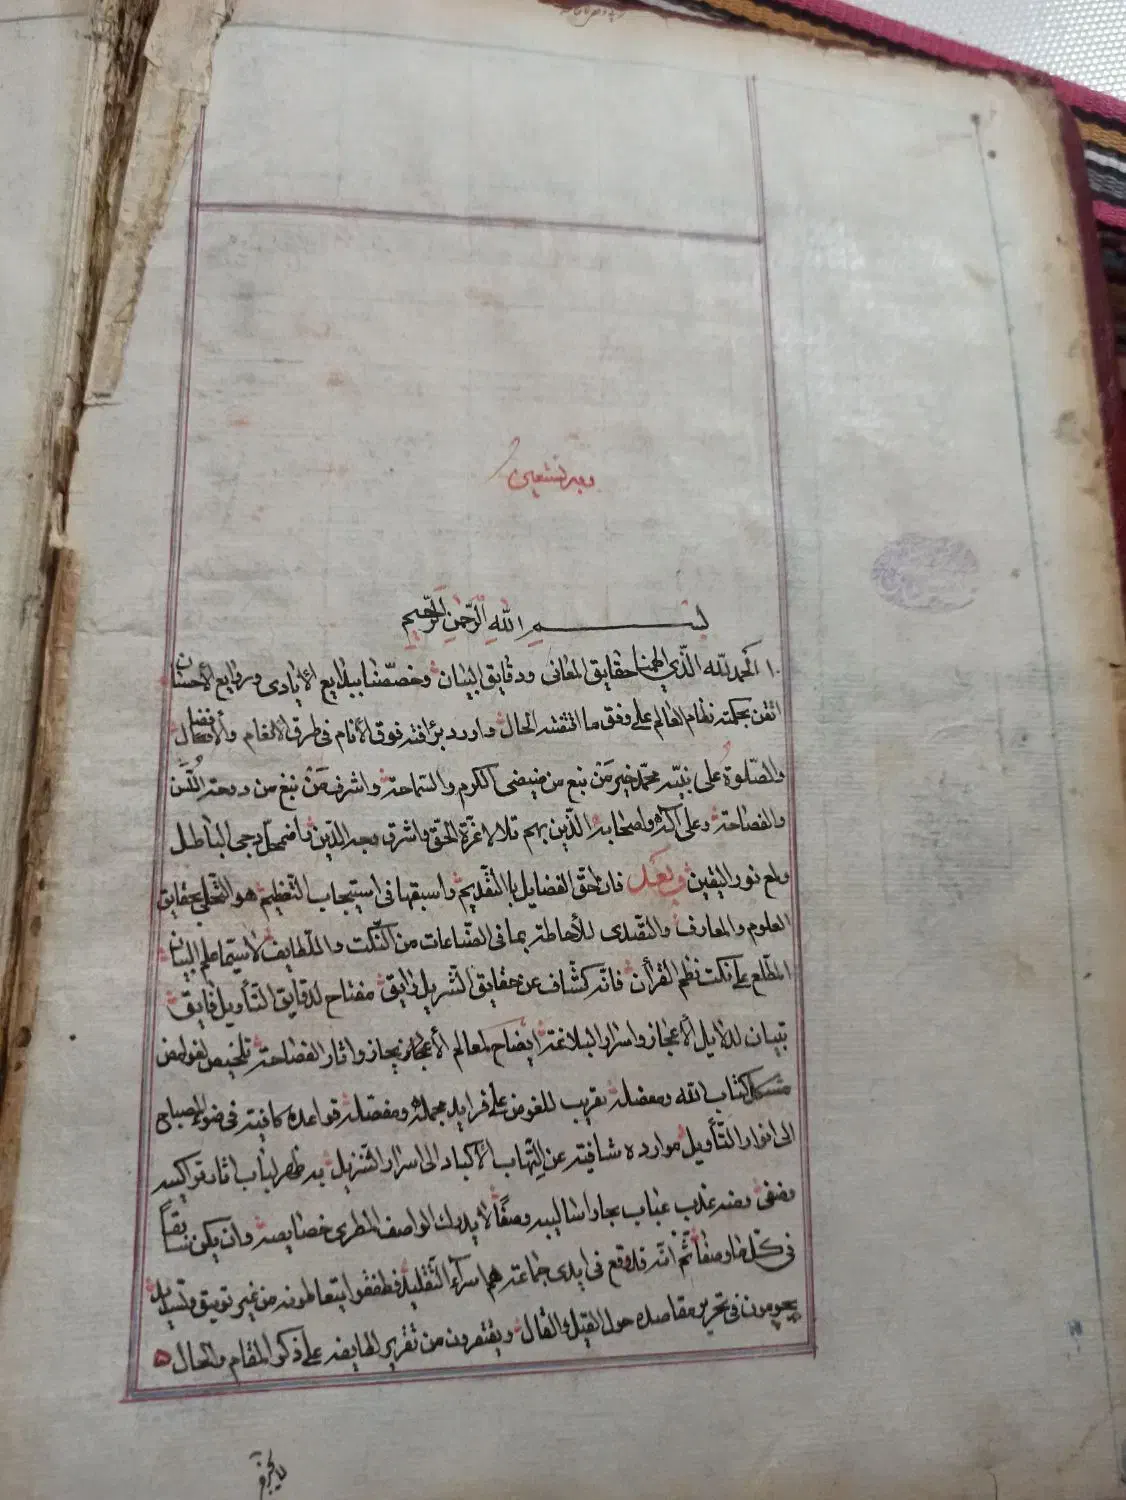 وبه نستعين
بسم الله الرحمن الرحيم
الحمد لله الذي الهمنا حقايق المعاني ودقايق البيان وخصصنا ببدايع الأيادي وروايع الأحسان
اتقن بحكمته نظام العالم على وفق ما اقتضته الحال واورد برأفته فوق الأنام في طرق الانعام والأفضال
والصلوة على نبيه محمد خير من نبع من ضيضئ الكرم والسماحة واشرف من نبغ من دوحة اللسن
والفصاحة وعلى آله واصحابه الذين بهم تلالا غرة الحق واشرق وجه الدين واضمحل دجى الباطل
ولمع نور اليقين وبعد فان احق الفضايل بالتقديم واسبقها في استيجاب التعظيم هو التحلي بحقايق
العلوم والمعارف والتصدى للأحاطة بما في الصناعات من النكت واللطايف لاسيما علم البيان
المطلع على نكت نظم القرأن فانه كشاف عن حقايق التنزيل رايق مفتاح لدقايق التأويل فايق
تبيان لدلايل الأعجاز واسرار البلاغة ايضاح لمعالم الأيجاز واثار الفصاحة تلخيص لغوامض
مشكل كتاب الله ومعضله تقريب للغوص على فرايد مجمله ومفصله قواعده كافية في ضوء المصباح
الى انوار التأويل موارده شافية عن التهاب الأكباد الى اسرار التنزيل به ظهر لباب اثار تراكيبه
وصفى وعنه عذب عباب بحار اساليبه وصفًا لا يدرك الواصف المطرى خصايصه وان يكن سابقًا
في كل ما وصفا ثم انه قد وقع في ايدى جماعة هم اسرآء التقليد فطفقوا يتعاطونه من غير توثيق وتسديد
يحومون في تحرير مقاصده حول القيل والقال ويقتصرون من تقرير لطايفه على ذكر المقام والحال